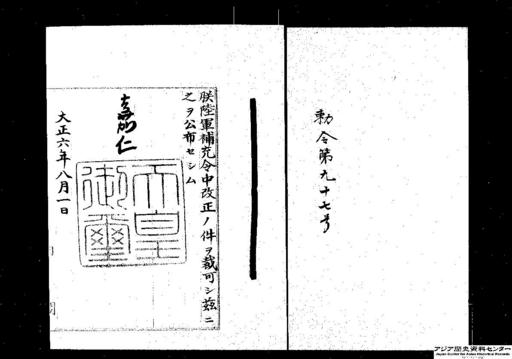 勅令第九十七号
朕陸軍補充令中改正ノ件ヲ裁可シ茲ニ
之ヲ公布セシム
嘉仁
天皇御璽
大正六年八月一日
アジア歴史資料センター
Japan Center for Asian Historical Records